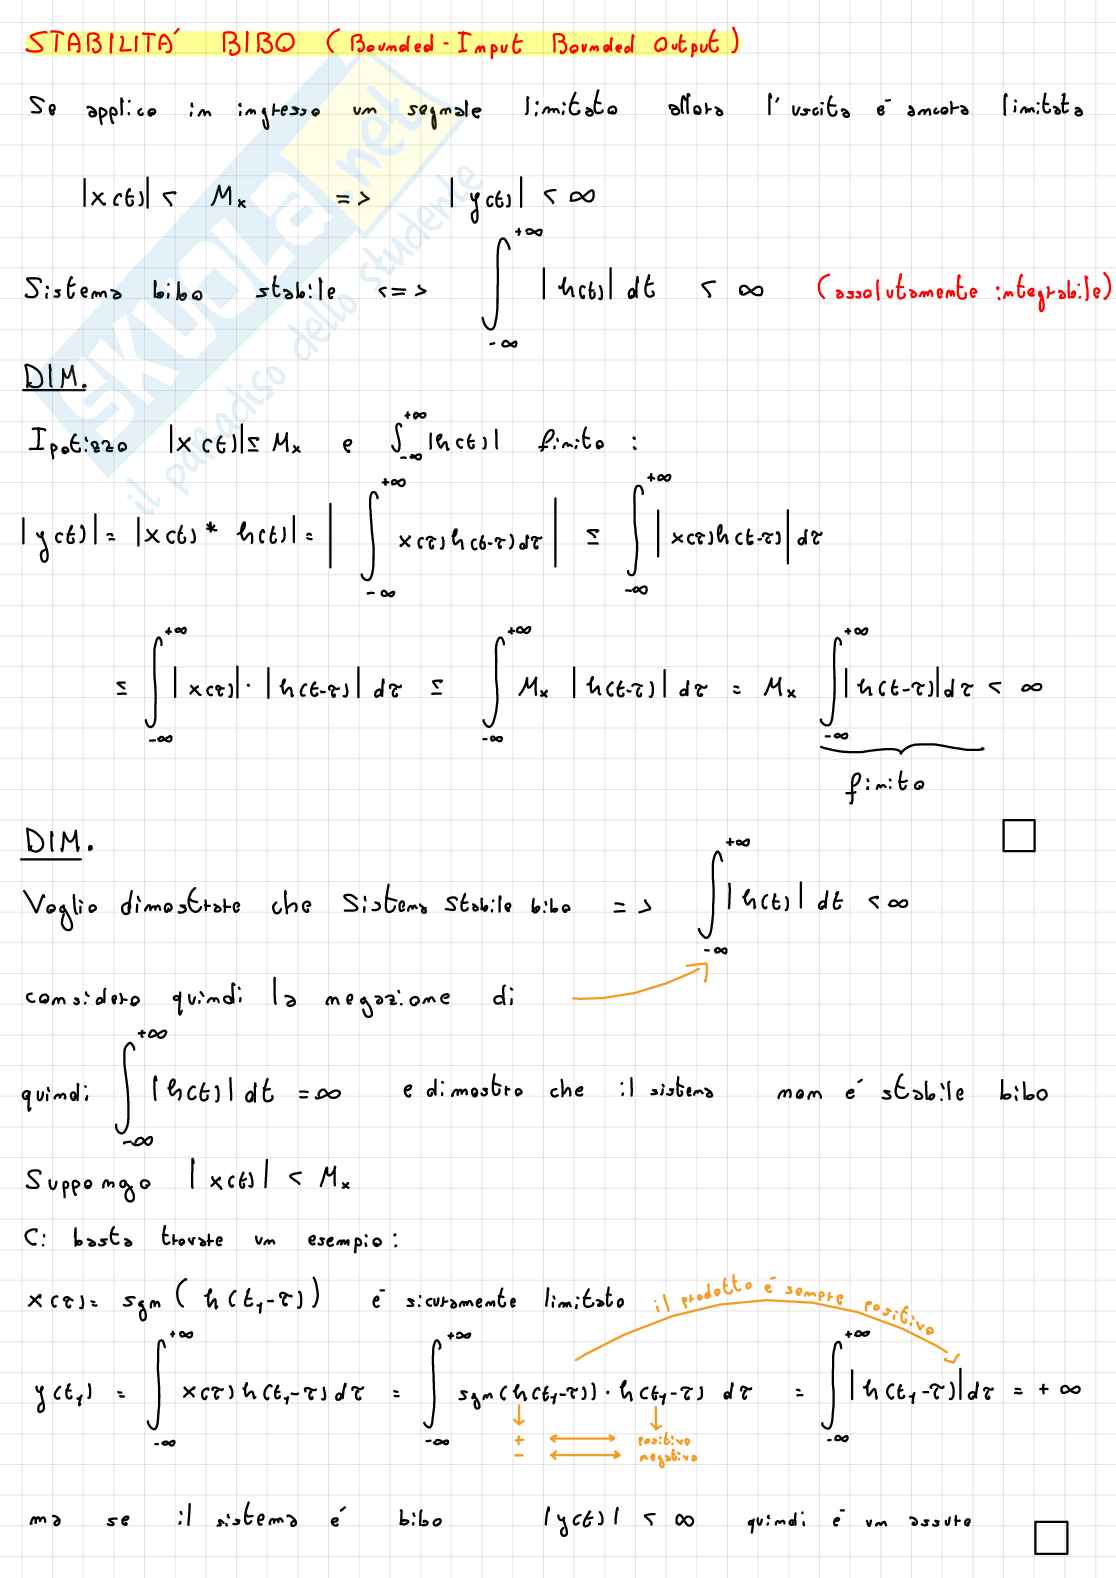 STABILITÀ BIBO (Bounded-Input Bounded Output)
Se applico in ingresso un segnale limitato allora l'uscita è ancora limitata
|x(t)| < Mx => |y(t)| < ∞
Sistema bibo stabile <=> ∫_{-∞}^{+∞} |h(t)| dt < ∞ (assolutamente integrabile)
DIM.
Ipotizzo |x(t)| ≤ Mx e ∫_{-∞}^{+∞} |h(t)| finito :
|y(t)| = |x(t) * h(t)| = | ∫_{-∞}^{+∞} x(τ) h(t-τ) dτ | ≤ ∫_{-∞}^{+∞} |x(τ) h(t-τ)| dτ
≤ ∫_{-∞}^{+∞} |x(τ)| · |h(t-τ)| dτ ≤ ∫_{-∞}^{+∞} Mx |h(t-τ)| dτ = Mx ∫_{-∞}^{+∞} |h(t-τ)| dτ < ∞
finito
DIM.
Voglio dimostrare che Sistema Stabile bibo => ∫_{-∞}^{+∞} |h(t)| dt < ∞
considero quindi la negazione di
quindi ∫_{-∞}^{+∞} |h(t)| dt = ∞ e dimostro che il sistema non é stabile bibo
Suppongo |x(t)| < Mx
Ci basta trovare un esempio:
x(τ) = sgn (h(t₁-τ)) è sicuramente limitato
il prodotto è sempre positivo
y(t₁) = ∫_{-∞}^{+∞} x(τ) h(t₁-τ) dτ = ∫_{-∞}^{+∞} sgn(h(t₁-τ)) · h(t₁-τ) dτ = ∫_{-∞}^{+∞} |h(t₁-τ)| dτ = +∞
+ ↔ positivo
- ↔ negativo
ma se il sistema é bibo |y(t)| < ∞ quindi è un assuro
SKUOLA.net
il paradiso dello studente